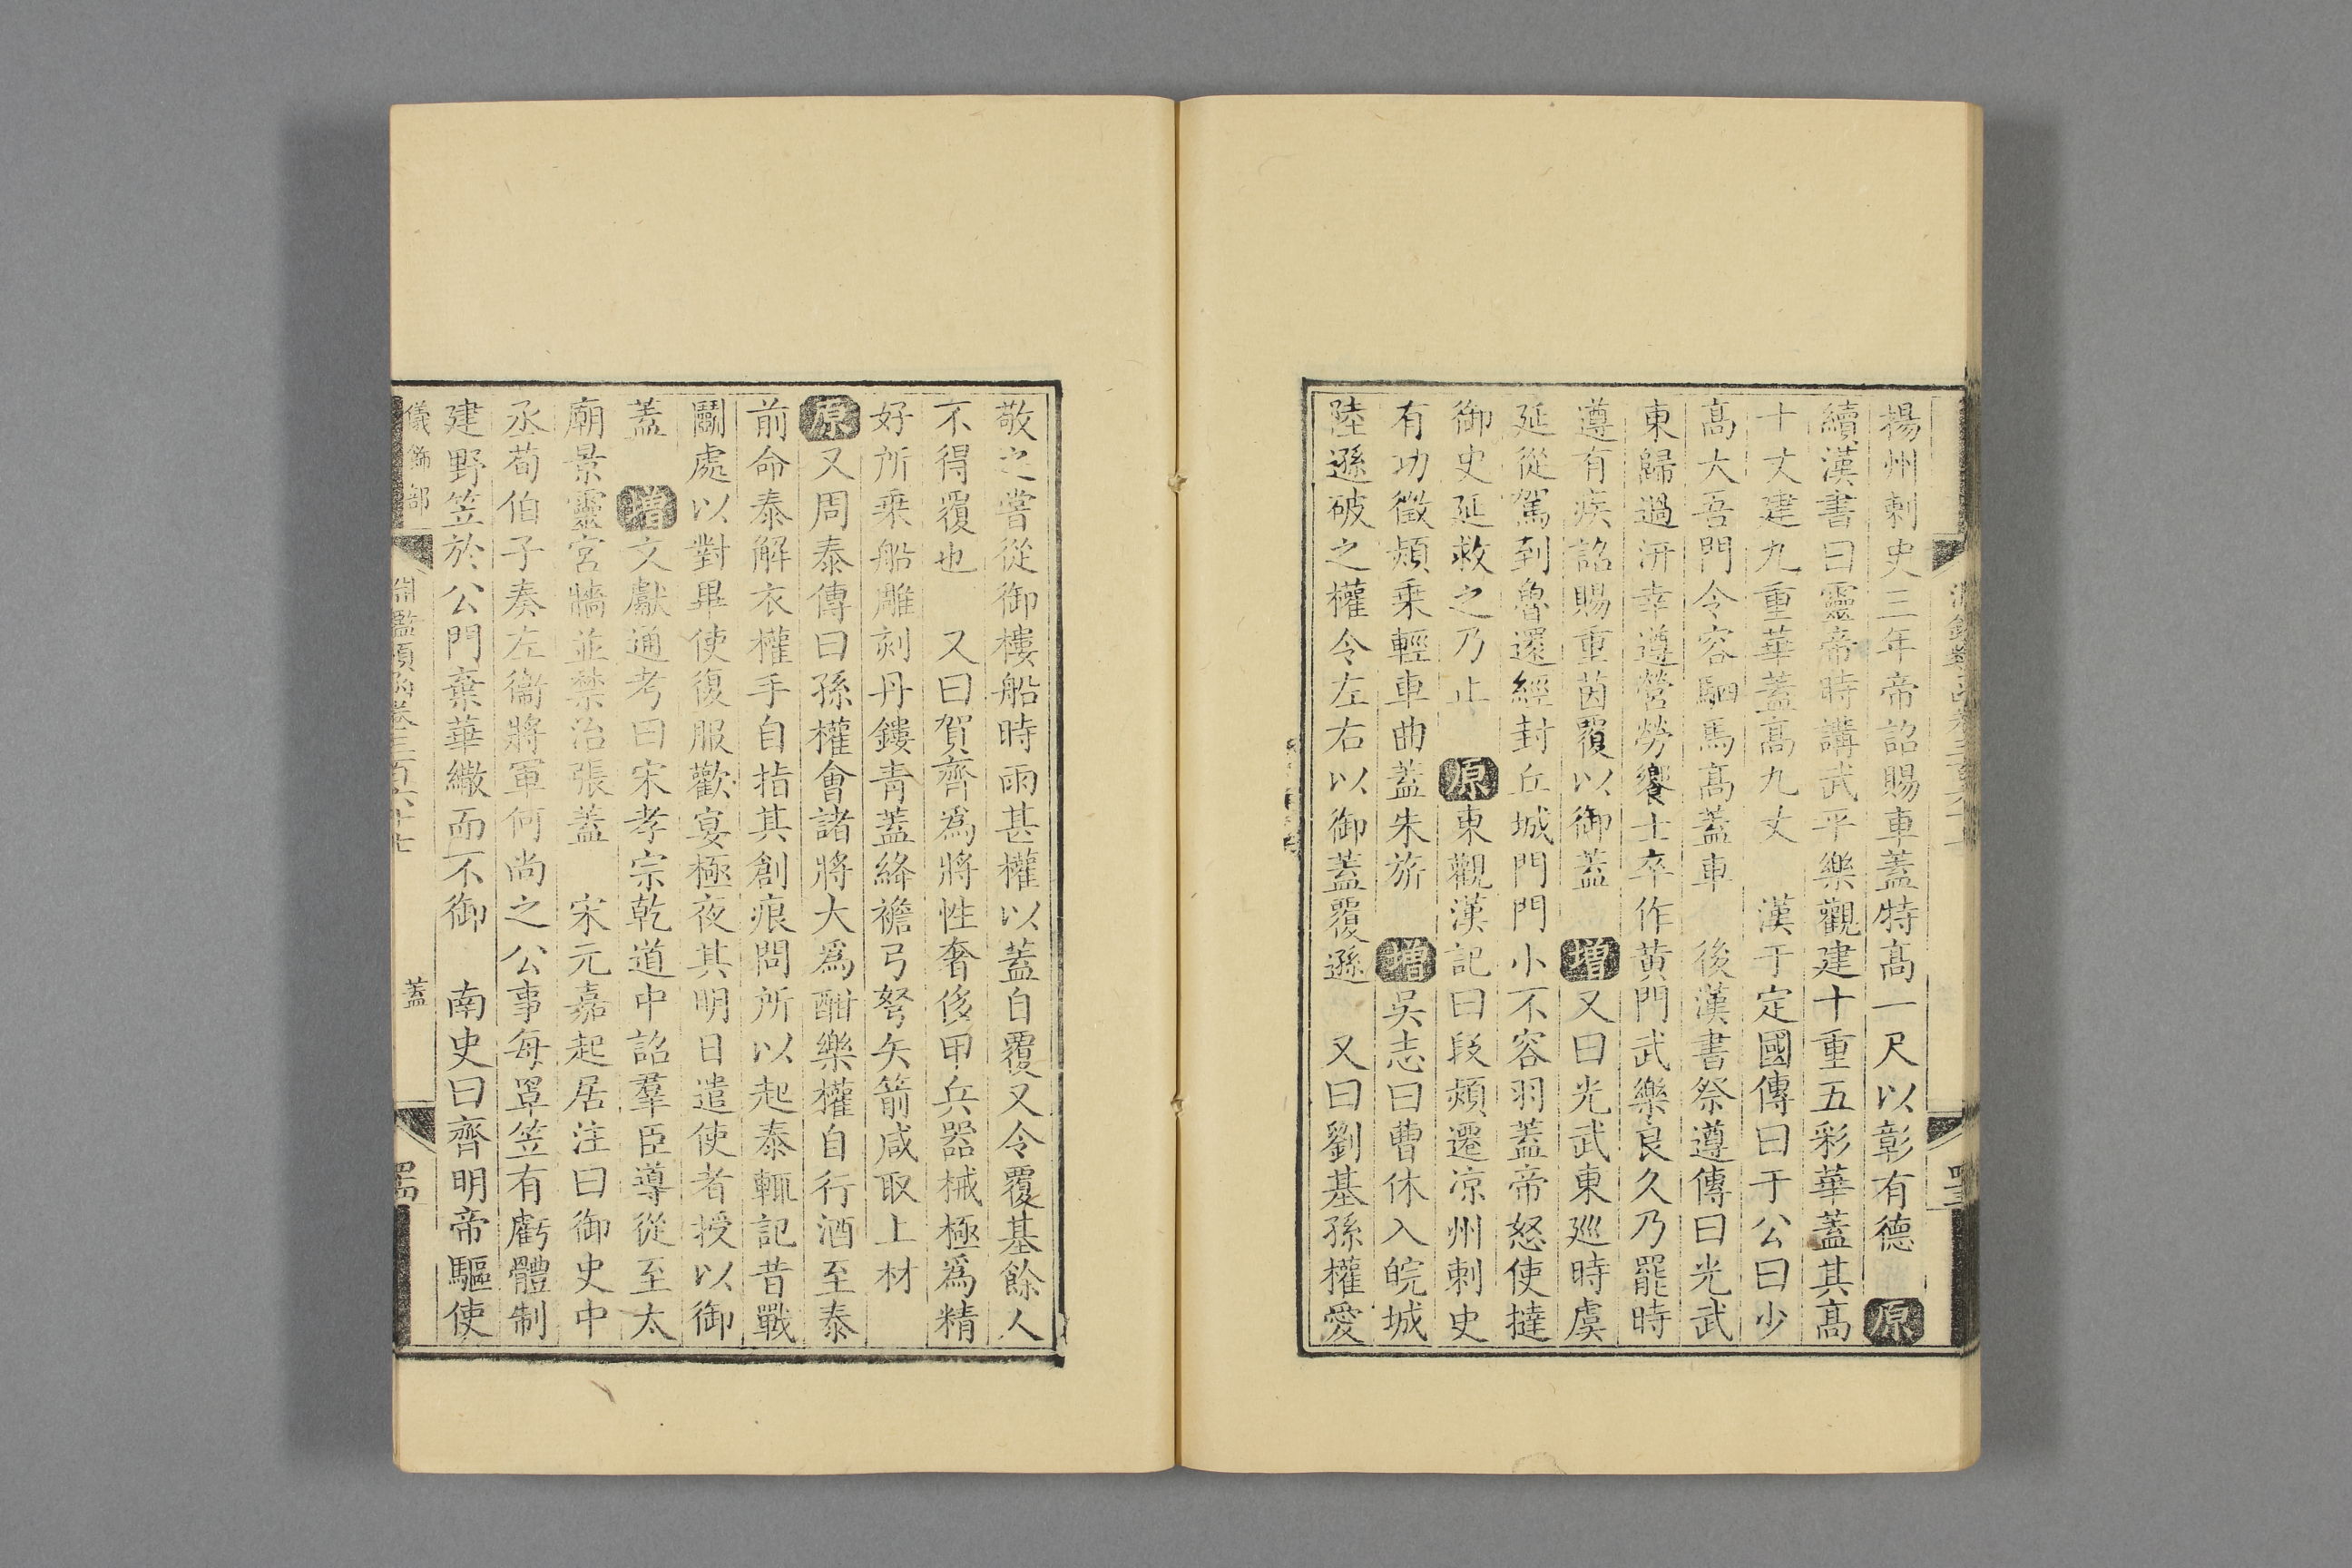 揚州刺史三年帝詔賜車蓋特高一尺以彰有德 原
續漢書曰靈帝時講武平樂觀建十重五彩華蓋其高
十丈建九重華蓋高九丈 漢于定國傳曰于公曰少
高大吾門令容駟馬高蓋車 後漢書祭遵傳曰光武
東歸過汧幸遵營勞饗士卒作黃門武樂良久乃罷時
遵有疾詔賜重茵覆以御蓋 增又曰光武東巡時虞
延從駕到魯還經封丘城門門小不容羽蓋帝怒使撻
御史延救之乃止 原東觀漢記曰段熲遷涼州刺史
有功徵熲乗輕車曲蓋朱旂 增吳志曰曹休入皖城
陸遜破之權令左右以御蓋覆遜 又曰劉基孫權愛
敬之嘗從御樓船時雨甚權以蓋自覆又令覆基餘人
不得覆也 又曰賀齊爲將性奢侈甲兵器械極爲精
好所乗船雕刻丹鏤青蓋絳襜弓弩矢箭咸取上材
原又周泰傳曰孫權會諸將大爲酣樂權自行酒至泰
前命泰解衣權手自指其創痕問所以起泰輒記昔戰
鬬處以對畢使復服歡宴極夜其明日遣使者授以御
蓋 增文獻通考曰宋孝宗乾道中詔羣臣導從至太
廟景靈宮牆並禁治張蓋 宋元嘉起居注曰御史中
丞荀伯子奏左衞將軍何尚之公事每罩笠有虧體制
建野笠於公門棄華繖而不御 南史曰齊明帝驅使
儀飾部
淵鑑類函卷三百六十七
蓋